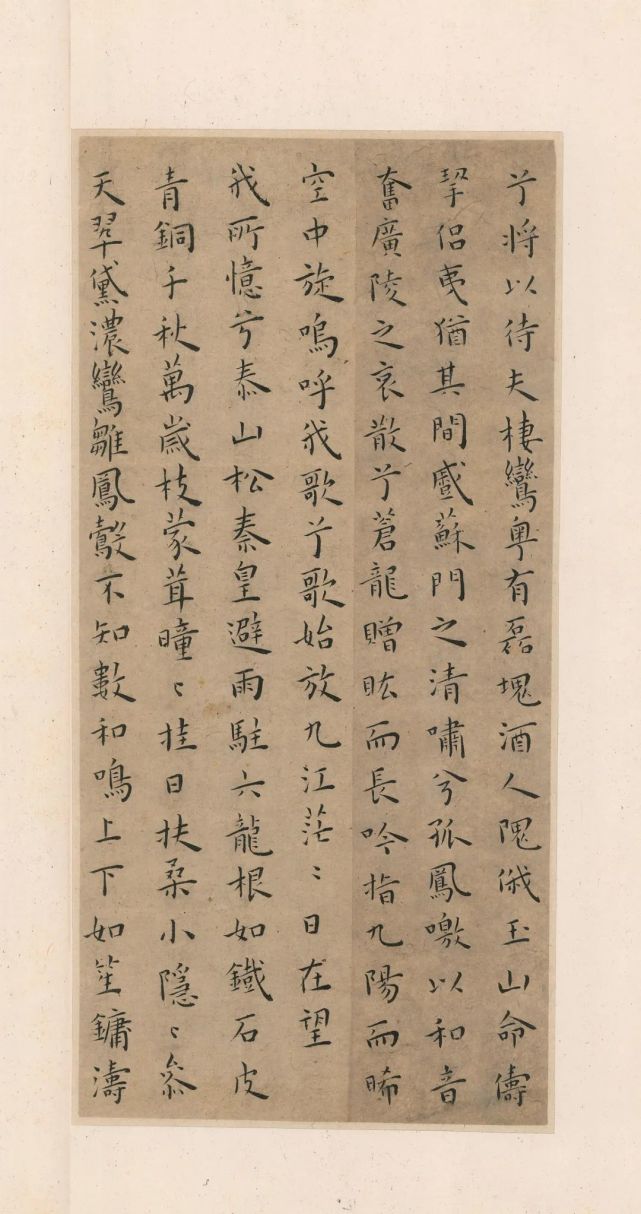 兮将以待夫棲鸞粤有磊塊酒人隗俄玉山命儔
挈侣夷猶其間感蘇門之清嘯兮孤鳳噭以和音
奮廣陵之哀散兮蒼龍贈眩而長吟指九陽而晞
空中旋嗚呼我歌兮歌始放九江茫〻日在望
我所憶兮泰山松秦皇避雨駐六龍根如鐵石皮
青銅千秋萬歲枝蒙茸曈〻挂日扶桑小隱〻叅
天翠黛濃鸞雛鳳鷇不知數和鳴上下如笙鏞濤